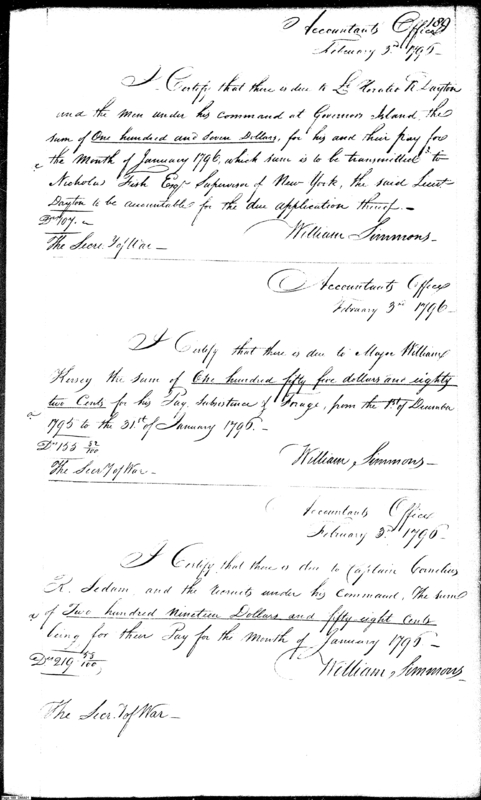 189
Accountants Office
February 3d 1795-
I Certify that there is due to Lt Horatio R. Dayton
and the Men under his command at Governors Island, the
sum of One hundred and seven Dollars, for his and their pay for
the Month of January 1796, which sum is to be transmitted to
Nicholas Fish Esqr Supervisor of New York, the said Lieut
Dayton to be accountable for the due application thereof.-
Drs 107.-
William Simmons-
The Secry of War-
Accountants Office
February 3rd 1796-
I Certify that there is due to Major William
Kersey the sum of One hundred fifty five dollars and eighty
two Cents for his Pay, Subsistence & Forage, from the 1st of December
1795 to the 31st of January 1796.-
Drs 155 82/100
William Simmons-
The Secry of War-
Accountants Office
February 3rd 1796-
I Certify that there is due to Captain Cornelius
R. Sedam, and the recruits under his Command, The sum
of Two hundred Nineteen Dollars and fifty eight Cents
being for their Pay for the Month of January 1796-
Drs 219 58/100,
William Simmons-
The Secry of War-